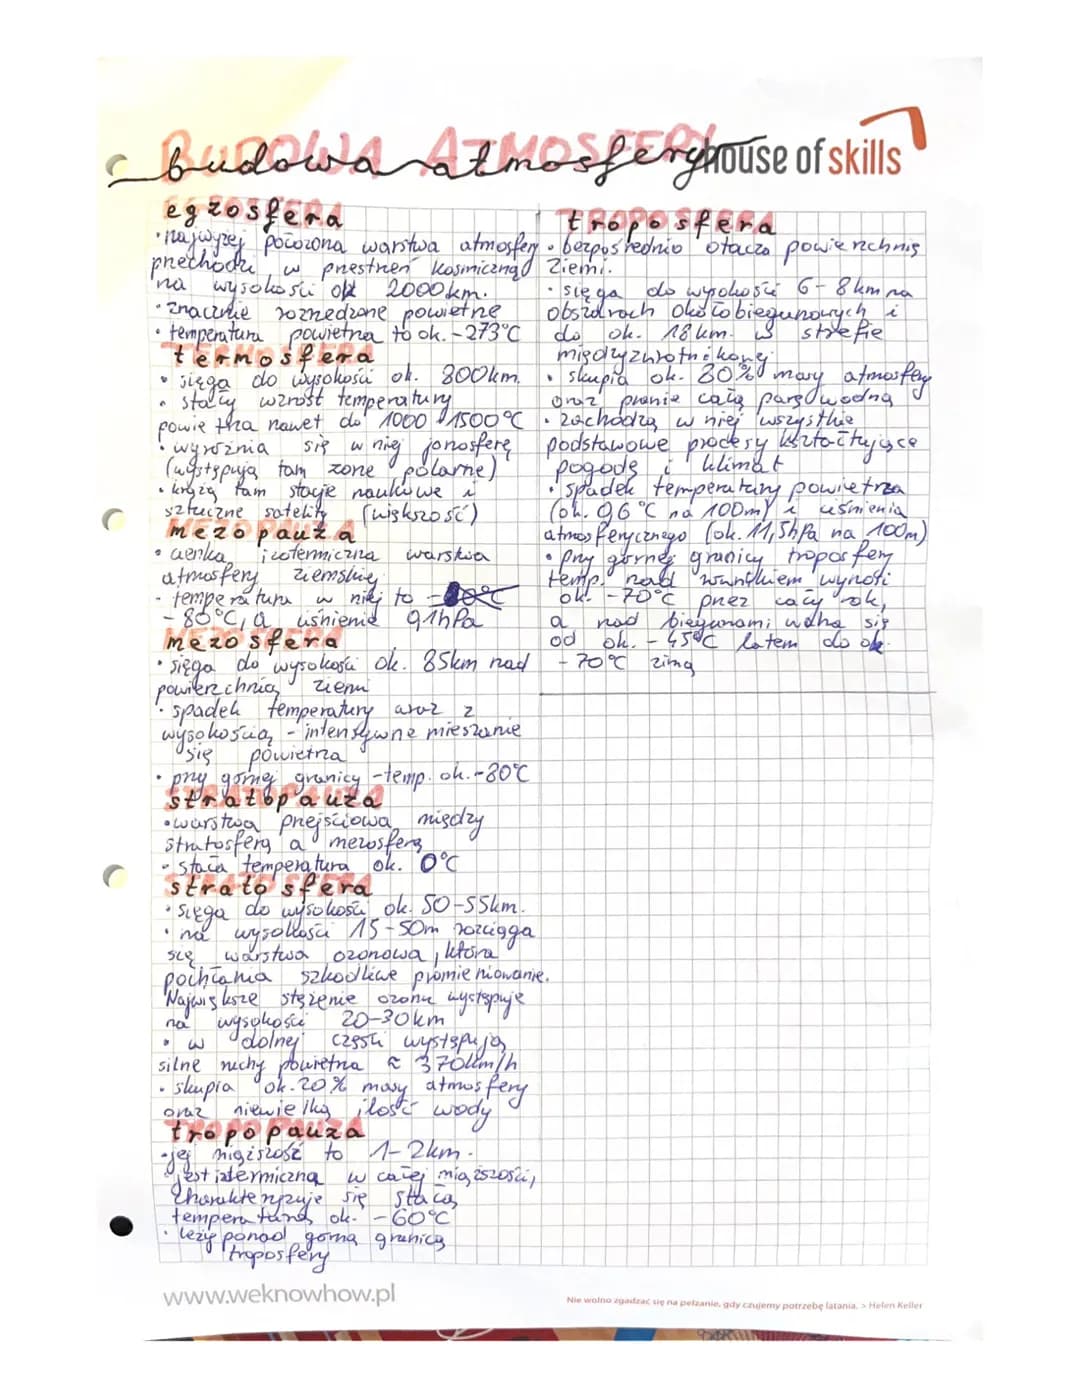 BUDOWA ATMOSFERY
budowa atmosfery
house of skills
egzosfera
• najwyżej położona warstwa atmosfery
przechodzi w przestrzeń kosmiczną
na wysokości ok 2000km.
• znacznie rozrzedzone powietrze
• temperatura powietrza to ok. -273°C
termosfera
• sięga do wysokości ok. 800km.
• stały wzrost temperatury
powietrza nawet do 1000 - 1500°C
• wyróżnia się w niej jonosferę
(występują tam zorze polarne)
• krążą tam stacje naukowe i
sztuczne satelity (większość)
mezopauza
• cienka izotermiczna warstwa
atmosfery ziemskiej
- temperatura w niej to
-80°C, a ciśnienie 0,1hPa
mezosfera
• sięga do wysokości ok. 85km nad
powierzchnią ziemi
• spadek temperatury wraz z
wysokością - intensywne mieszanie
się powietrza
• przy górnej granicy -temp. ok. -80°C
stratopauza
• warstwa przejściowa między
stratosferą a mezosferą
- stała temperatura ok. 0°C
stratosfera
• sięga do wysokości ok. 50-55km.
• na wysokości 15-50m rozciąga
się warstwa ozonowa, która
pochłania szkodliwe promieniowanie.
Największe stężenie ozonu występuje
na wysokości 20-30km
• w dolnej części występują
silne ruchy powietrza ≈ 370km/h
• skupia ok. 20% masy atmosfery
oraz niewielką ilość wody
tropopauza
• jej miąższość to 1-2km.
• jest izotermiczna w całej miąższości,
charakteryzuje się stałą
temperaturą ok. -60°C
• leży ponad górną granicą
troposfery
troposfera
• bezpośrednio otacza powierzchnię
Ziemi.
• sięga do wysokości 6-8km na
obszarach okołobiegunowych i
do ok. 18km. w strefie
międzyzwrotnikowej
• skupia ok. 80% masy atmosfery
oraz prawie całą parę wodną
• zachodzą w niej wszystkie
podstawowe procesy kształtujące
pogodę i klimat
• spadek temperatury powietrza
(ok. 0,6°C na 100m) i ciśnienia
atmosferycznego (ok. 11,5hPa na 100m)
• przy górnej granicy troposfery
temp. nad równikiem wynosi
ok. -70°C przez cały rok,
a nad biegunami waha się
od ok. -45°C latem do ok.
-70°C zimą
www.weknowhow.pl
Nie wolno zgadzać się na pełzanie, gdy czujemy potrzebę latania. > Helen Keller